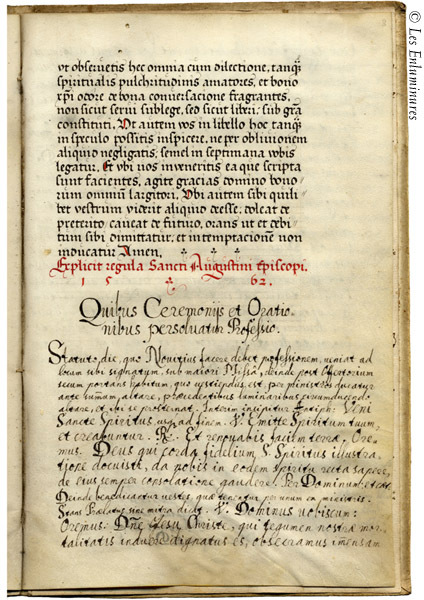 vt obseruetis hec omnia cum dilectione, tanq̃
spiritualis pulchritudinis amatores, et bono
xp̃i odore de bona conuersacione fragrantes,
non sicut serui sub lege, sed sicut liberi sub gr̃a
constituti. Vt autem vos in libello hoc tanq̃
in speculo possitis inspicere, ne per obliuionem
aliquid negligatis, semel in septimana vobis
legatur. Et vbi vos inueneritis ea que scripta
sunt facientes, agite gracias domino bono
rum omniũ largitori. Vbi autem sibi quili
bet vestrum viderit aliquid deesse, doleat de
preterito caueat de futuro, orans vt et debi
tum sibi dimittatur, et in temptacionẽ non
inducatur Amen.
Explicit regula Sancti Augustini Episcopi.
1 5 6 2.
Quibus Ceremonijs et Oratio-
nibus persoluatur Professio.
Statuto die, quo Nouitius facere debet professionem, ueniat ad
locum sibi signatum, sub maiori Missa, deinde post Offertorium
secum portans habitum, quo uestiendus est, per ministros ducatur
ante sumum altare, præcedentibus luminaribus circumducendo
altare, et ibi se prosternat. Interim incipitur Antiph: Veni
Sancte Spiritus, usq; ad finem. V. Emitte Spiritum tuum,
et creabuntur. Re. Et renouabis faciem terræ, Ore-
mus. Deus qui corda fidelium S. Spiritus illustra-
tione docuisti, da nobis in eodem Spiritu recta sapere,
de eius semper consolatione gaudere. Per Dominum
Deinde benedicantur uestes, quæ tenentur per unum ex ministris.
Stans Prælatus sine mitra dicit. V. Dominus uobiscum:
Oremus: Dñe Jesu Christe, qui tegumen nostræ mor-
talitatis induere dignatus es, obsecramus imensam
© Les Enluminures